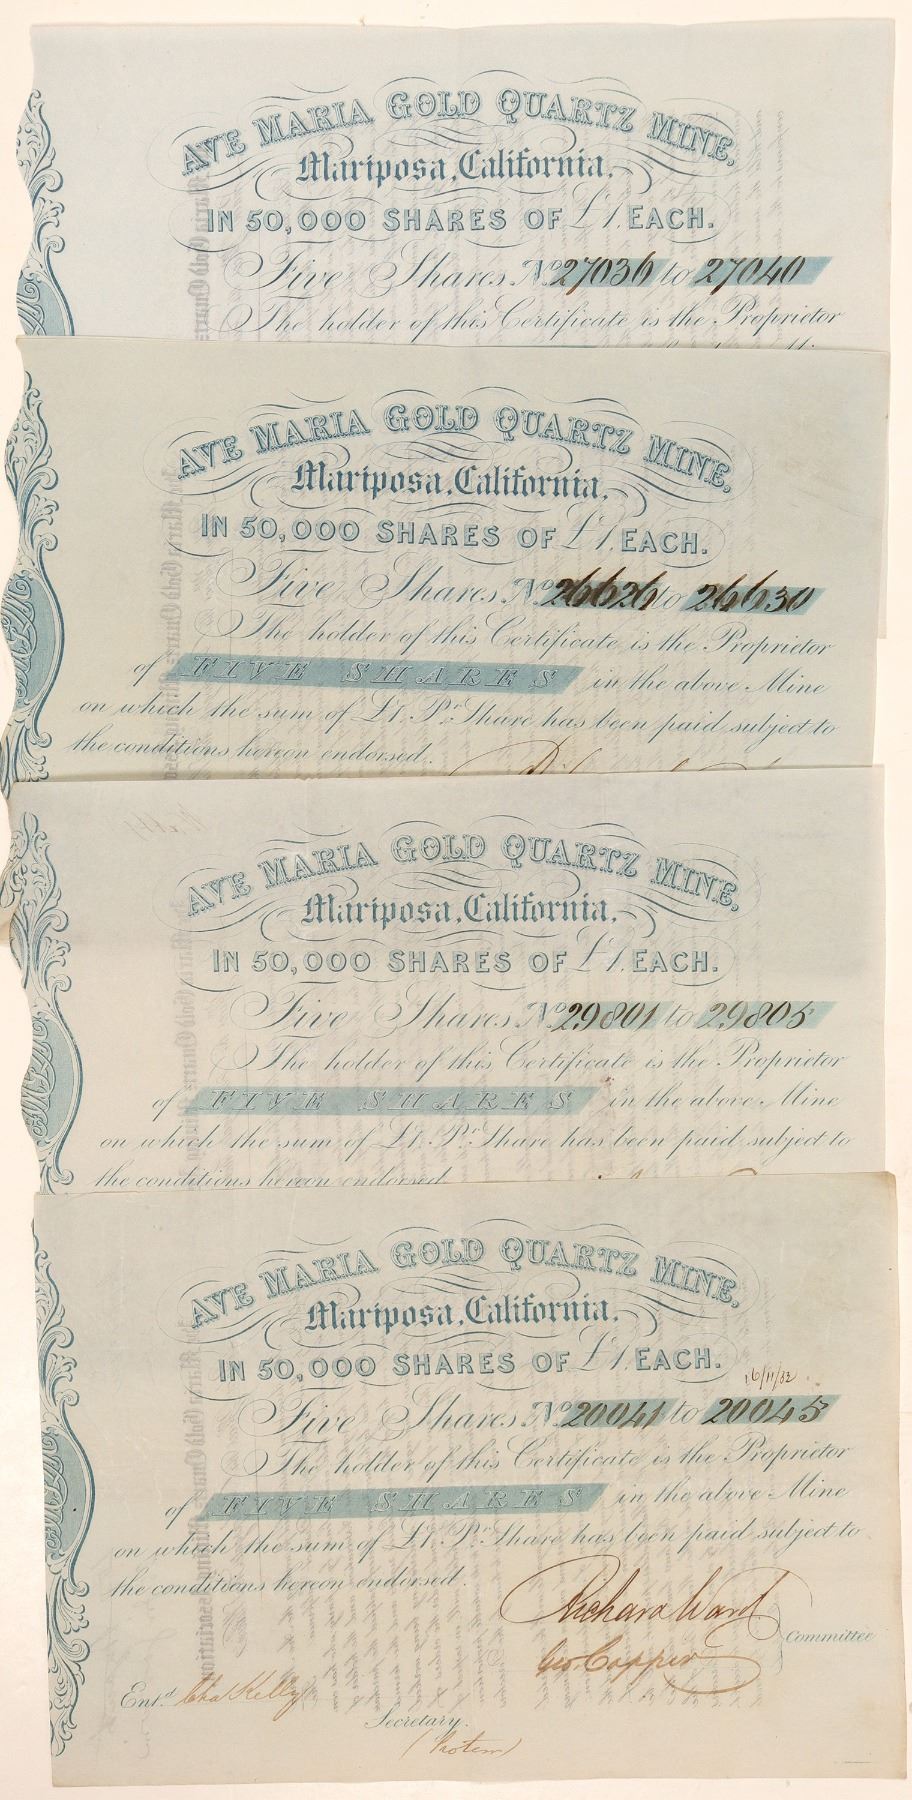 AVE MARIA GOLD QUARTZ MINE,
Mariposa, California,
IN 50,000 SHARES OF £1, EACH.
Five Shares, No 27036 to 27040
The holder of this Certificate is the Proprietor
AVE MARIA GOLD QUARTZ MINE,
Mariposa, California,
IN 50,000 SHARES OF £1, EACH.
Five Shares, No 26626 to 26630
The holder of this Certificate is the Proprietor
of FIVE SHARES in the above Mine
on which the sum of £1. Pr. Share has been paid subject to
the conditions hereon endorsed.
AVE MARIA GOLD QUARTZ MINE,
Mariposa, California,
IN 50,000 SHARES OF £1, EACH.
Five Shares, No 29801 to 29805
The holder of this Certificate is the Proprietor
of FIVE SHARES in the above Mine
on which the sum of £1. Pr. Share has been paid subject to
the conditions hereon endorsed
AVE MARIA GOLD QUARTZ MINE,
Mariposa, California,
IN 50,000 SHARES OF £1, EACH.
Five Shares, No 20041 to 20045
The holder of this Certificate is the Proprietor
of FIVE SHARES in the above Mine
on which the sum of £1. Pr. Share has been paid subject to
the conditions hereon endorsed.
Richard Ward
Committee
Geo. Copper
Entd. Chas Kelly
Secretary.
(Protem)